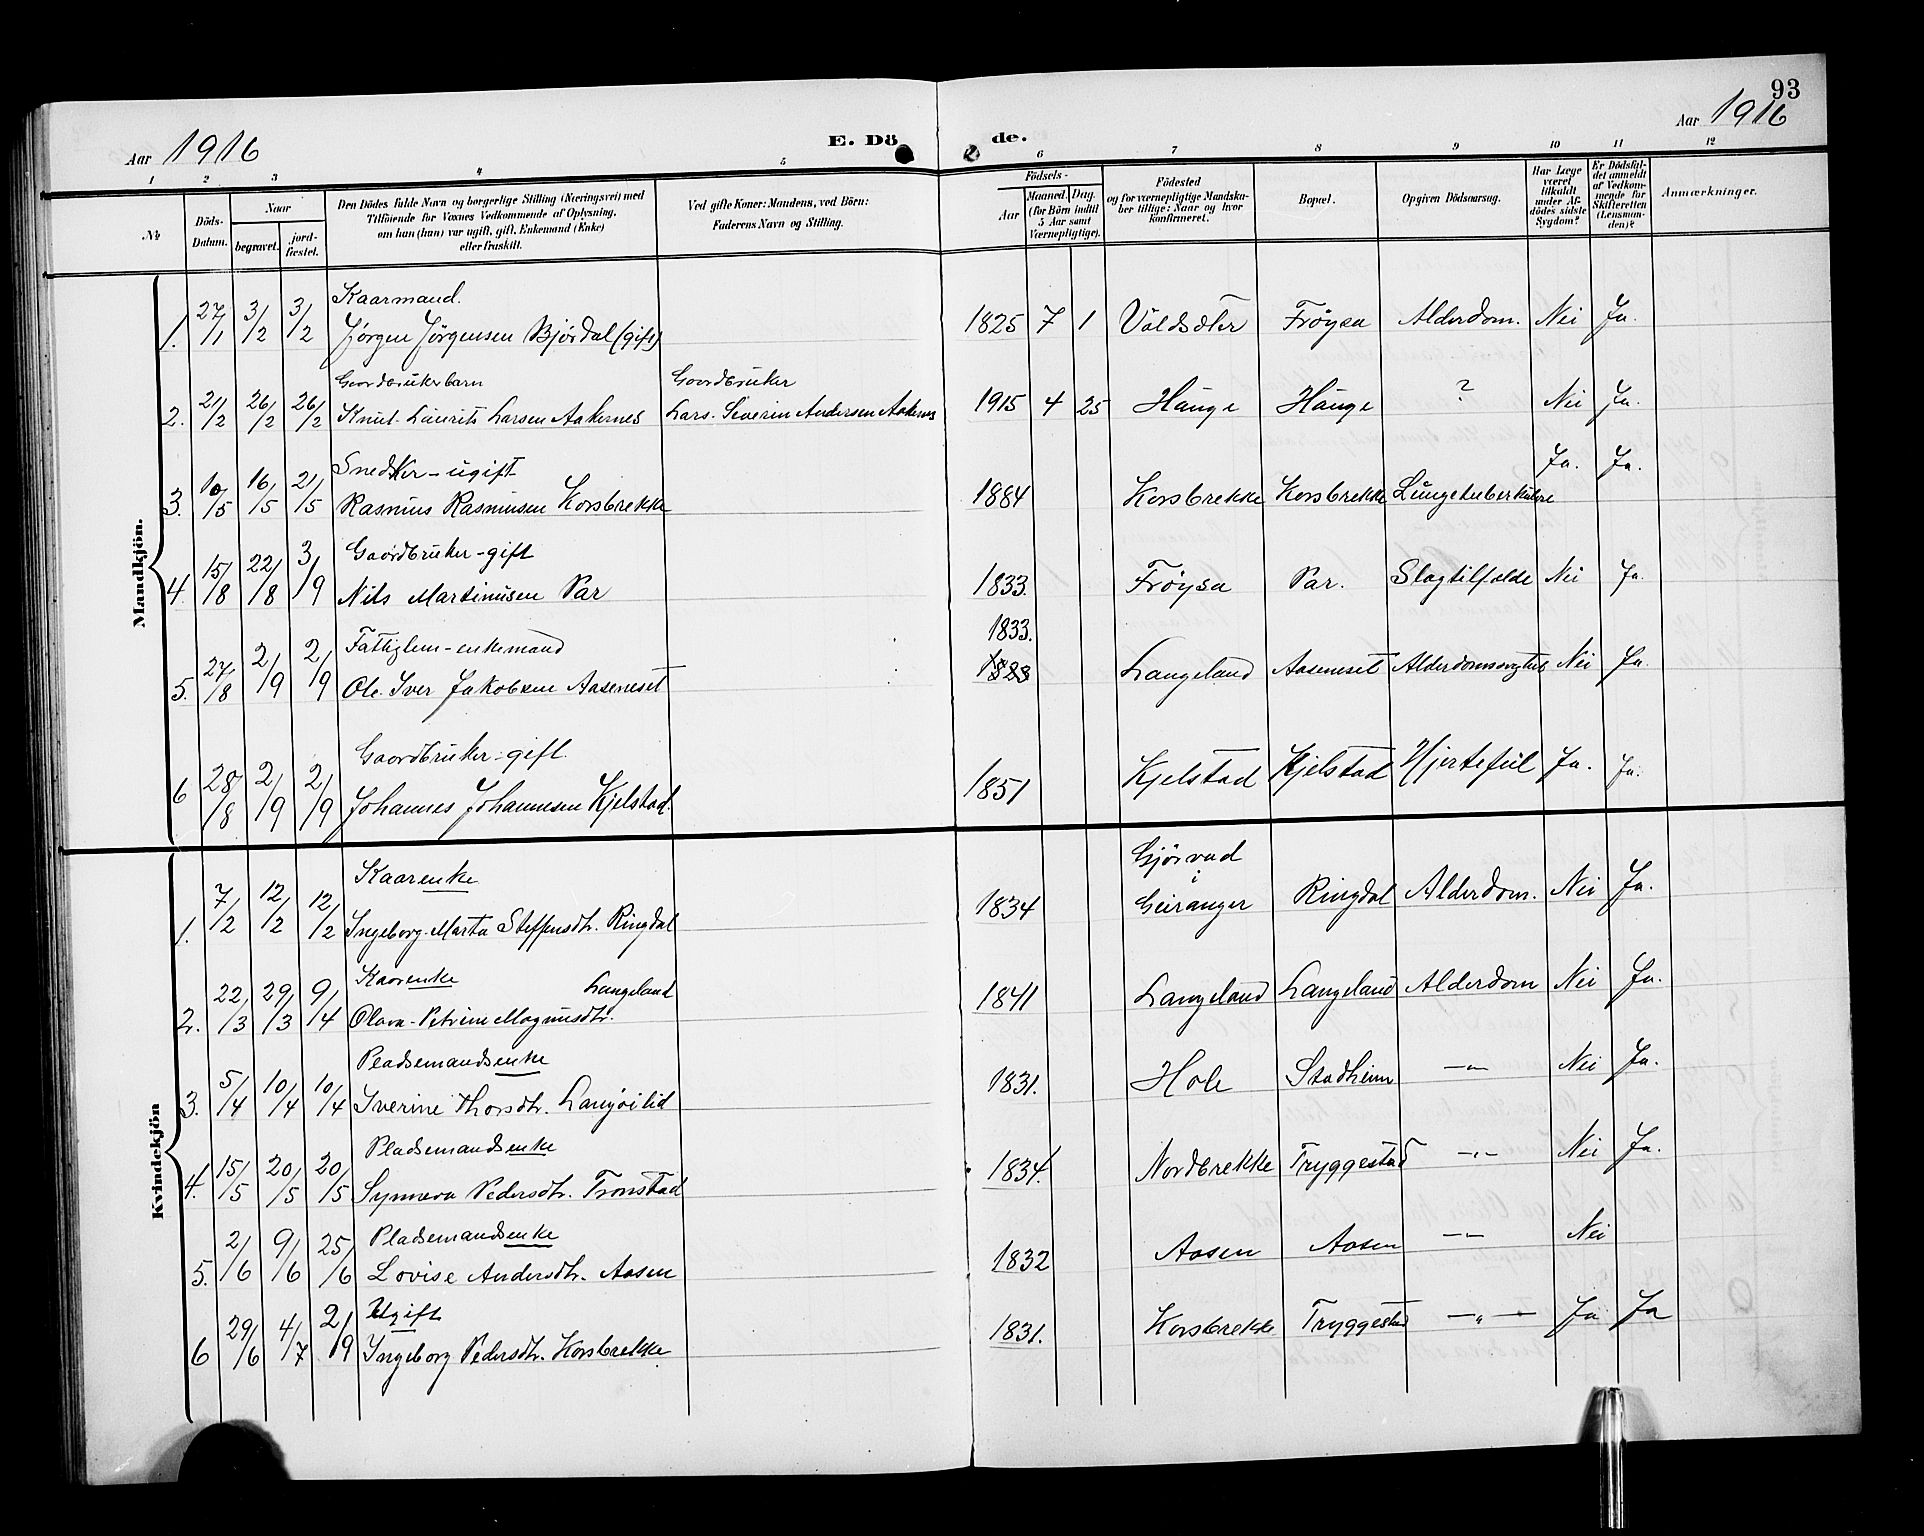 93
Aar 1916
E. Döde.
Aar 1916
1 2 3 4 5 6 7 8 9 10 11 12
№
Döds-Datum.
Naar
begravet.
jordfæstet.
Den Dödes fulde Navn og borgerlige Stilling (Næringsvei) med
Tilföiende for Voxnes Vedkommende af Oplysning,
om han (hun) var ugift, gift, Enkemand (Enke)
eller fraskilt.
Ved gifte Koner: Mandens, ved Börn:
Faderens Navn og Stilling.
Födsels-
Aar
Maaned. Dag.
(for Börn indtil
5 Aar samt
Værnepligtige).
Födested
og for værnepligtige Mandskaber tillige: Naar og hvor
konfirmeret.
Bopæl.
Opgiven Dödsaarsag.
Har Læge
været
tilkaldt
under Afdödes sidste
Sygdom?
Er Dödsfaldet anmeldt
af Vedkommende for
Skifteretten
(Lensmanden)?
Anmærkninger.
Mandkjön.
Kaarmand.
1. 27/1 3/2 3/2 Jørgen Jørgensen Bjørdal (gift) 1825 7 1 Voldsæter Frøysa Alderdom. Nei Ja.
Gaardbrukerbarn Gaardbruker
2. 21/2 26/2 26/2 Knut-Laurits Larsen Aakernes Lars-Severin Andersen Aakernes 1915 4 25 Hauge Hauge ? Nei Ja.
Snedker - ugift
3. 10/5 16/5 21/5 Rasmus Rasmussen Korsbrekke 1884 Korsbrekke Korsbrekke Lungetuberkulose Ja. Ja.
Gaardbruker - gift
4. 15/8 22/8 3/9 Nils Martinusen Par 1833. Frøysa Par. Slagtilfælde Nei Ja.
Fattiglem - enkemand 1833.
5. 27/8 2/9 2/9 Ole-Iver Jakobsen Aaseneset 1823 Langeland Aaseneset Nei Ja.
Gaardbruker - gift.
6 28/8 2/9 2/9 Johannes Johannesen Kjelstad. 1851 Kjelstad Kjelstad Hjertefeil Ja. Ja.
Kvindekjön
Kaarenke Gjørvad
1. 7/2 12/2 12/2 Ingeborg-Marta Steffensdtr. Ringdal 1834 i Geiranger Ringdal Alderdom. Nei Ja.
Kaarenke Langeland
2. 22/3 29/3 9/4 Olava-Petrine Magnusdtr. 1841 Langeland Langeland Alderdom Nei Ja.
Pladsemandsenke
3. 5/4 10/4 10/4 Iverine Thorsdtr. 1831. Hole Stadheim —"— Nei Ja.
Pladsemandsenke
4. 15/5 20/5 20/5 Synneva Pedersdtr. Tronstad 1834. Nordbrekke Tryggestad —"— Nei Ja.
Pladsemandsenke
5. 2/6 9/6 25/6 Lovise Andersdtr. Aasen 1832 Aasen Aasen —"— Nei
Ugift
6 29/6 4/7 2/9 Ingeborg Pedersdtr. Korsbrekke 1831. Korsbrekke Tryggestad —"— Ja Ja